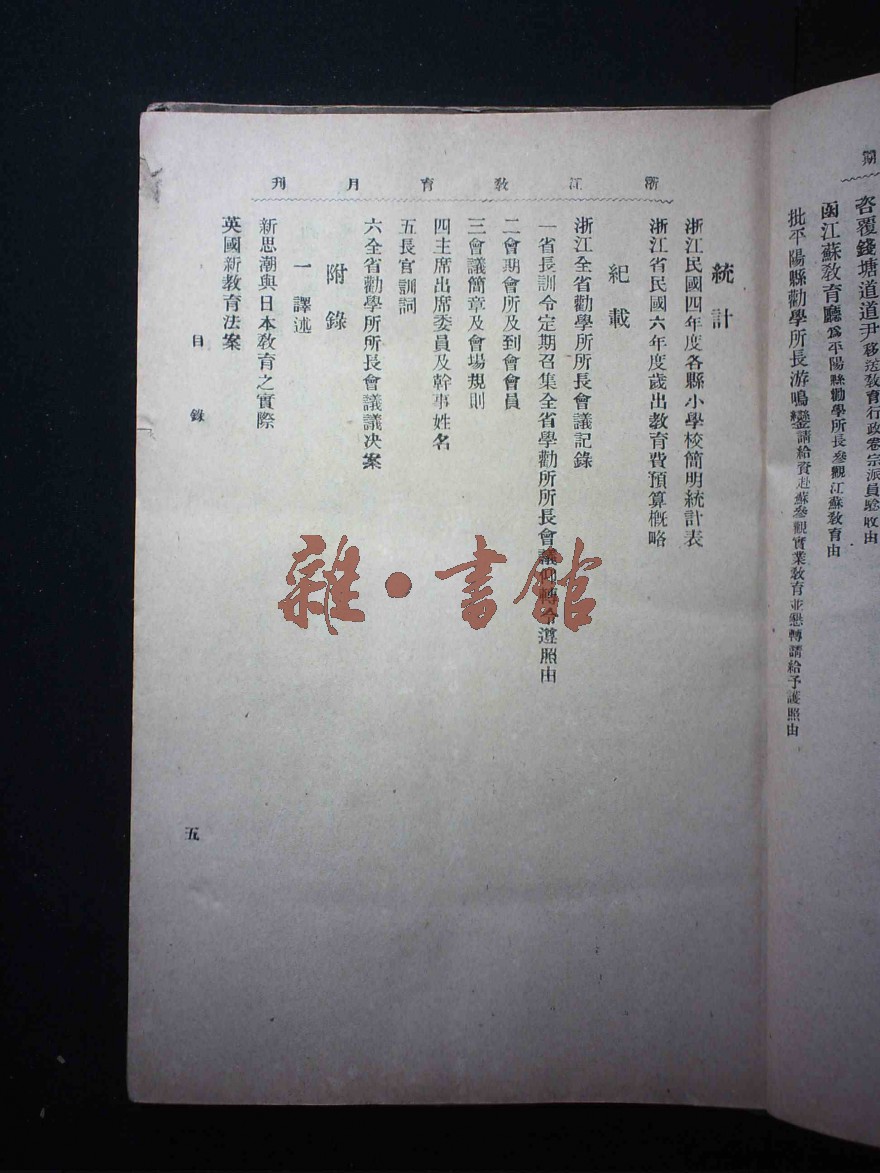 期
咨覆錢塘道道尹移送教育行政卷宗派員驗收由
函江蘇教育廳爲平陽縣勸學所長參觀江蘇教育由
批平陽縣勸學所長游鳴鑾請給資赴蘇參觀實業教育並懇轉請給予護照由
浙江教育月刊
統計
浙江民國四年度各縣小學校簡明統計表
浙江省民國六年度歲出教育費預算概略
紀載
浙江全省勸學所所長會議記錄
一省長訓令定期召集全省學勸所所長會議仰轉令遵照由
二會期會所及到會會員
三會議簡章及會場規則
四主席出席委員及幹事姓名
五長官訓詞
六全省勸學所所長會議議決案
附錄
一 譯述
新思潮與日本教育之實際
英國新教育法案
目錄
五
雜·書館